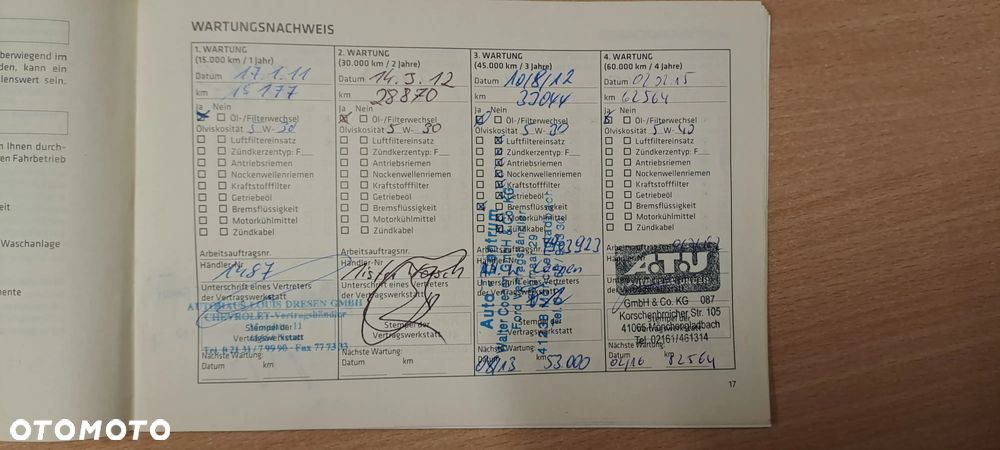 berwiegend im
den, kann ein
lenswert sein.
n Ihnen durch-
en Fahrbetrieb
Waschanlage
WARTUNGSNACHWEIS
1. WARTUNG
(15.000 km / 1 Jahr)
Datum 17.1.11
km 15177
Ja Nein
Öl-/Filterwechsel
Ölviskosität 5 W- 30
Luftfiltereinsatz
Zündkerzentyp: F
Antriebsriemen
Nockenwellenriemen
Kraftstofffilter
Getriebeöl
Bremsflüssigkeit
Motorkühlmittel
Zündkabel
Arbeitsauftragsnr.
Händler-Nr.
1487
Unterschrift eines Vertreters
der Vertragswerkstatt
AUTOHAUS LOUIS DRESEN GMBH
CHEVROLET-Vertragshändler
Stempel der
Vertragswerkstatt
Tel. 0 21 31 / 7 99 90 - Fax 77 73 33
Nächste Wartung:
Datum km
2. WARTUNG
(30.000 km / 2 Jahre)
Datum 14.3.12
km 28870
Ja Nein
Öl-/Filterwechsel
Ölviskosität 5 W- 30
Luftfiltereinsatz
Zündkerzentyp: F
Antriebsriemen
Nockenwellenriemen
Kraftstofffilter
Getriebeöl
Bremsflüssigkeit
Motorkühlmittel
Zündkabel
Arbeitsauftragsnr.
Händler-Nr.
Unterschrift eines Vertreters
der Vertragswerkstatt
Stempel der
Vertragswerkstatt
Nächste Wartung:
Datum km
3. WARTUNG
(45.000 km / 3 Jahre)
Datum 10/8/12
km 33044
Ja Nein
Öl-/Filterwechsel
Ölviskosität 5 W- 30
Luftfiltereinsatz
Zündkerzentyp: F
Antriebsriemen
Nockenwellenriemen
Kraftstofffilter
Getriebeöl
Bremsflüssigkeit
Motorkühlmittel
Zündkabel
Auto Zentrum
Walter Coenen GmbH & Co. KG
Ford Vertragshändler
Unterschrift eines Vertreters
der Vertragswerkstatt
Nächste Wartung:
Datum 08/13 km 53.000
4. WARTUNG
(60.000 km / 4 Jahre)
Datum
km 62564
Ja Nein
Öl-/Filterwechsel
Ölviskosität 5 W- 40
Luftfiltereinsatz
Zündkerzentyp: F
Antriebsriemen
Nockenwellenriemen
Kraftstofffilter
Getriebeöl
Bremsflüssigkeit
Motorkühlmittel
Zündkabel
Arbeitsauftragsnr.
Händler-Nr.
A.T.U
GmbH & Co. KG 087
Korschenbroicher Str. 105
41065 Mönchengladbach
Tel. 02161/461314
Nächste Wartung:
Datum 02/16 km 82564
17
OTOMOTO